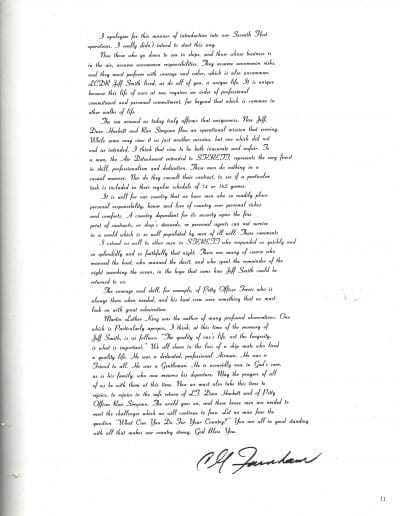 I apologize for this manner of introduction into our Seventh Fleet
operations. I really didn't intend to start this way.
Now those who go down to sea in ships, and those whose business is
in the air, assume uncommon responsibilities. They assume uncommon risks,
and they must perform with courage and valor, which is also uncommon.
LCDR Jeff Smith lived, as do all of you, a unique life. It is unique
because this life of ours at sea requires an order of professional
commitment and personal commitment, far beyond that which is common in
other walks of life.
The sea around us today truly affirms that uniqueness. Now Jeff,
Dave Hackett and Ron Simpson flew an operational mission that evening.
While some may view it as just another mission, but one which did not
end as intended. I think that view to be both inaccurate and unfair. To
a man, the Air Detachment entrusted to STERETT, represents the very finest
in skill, professionalism and dedication. These men do nothing in a
casual manner. Nor do they consult their contract, to see if a particular
task is included in their regular schedule of 14 or 162 games.
It is well for our country that we have men who so readily place
personal responsibility, honor and love of country over personal riches
and comforts. A country dependent for its security upon the fine
print of contracts, or shop's stewards, or personal agents can not survive
in a world which is so well populated by men of ill will. These comments
I extend as well to other men in STERETT who responded so quickly and
so splendidly and so faithfully that night. There are many of course who
manned the boat, who manned the davit, and who spent the remainder of the
night searching the ocean, in the hope that some how Jeff Smith could be
returned to us.
The courage and skill, for example, of Petty Officer Ferris who is
always there when needed, and his boat crew were something that we must
look on with great admiration.
Martin Luther King was the author of many profound observations. One
which is Particularly apropos, I think, at this time of the memory of
Jeff Smith, is as follows: "The quality of one's life, not the longevity,
is what is important." We all share in the loss of a ship mate who loved
a quality life. He was a dedicated, professional Airman. He was a
Friend to all. He was a Gentleman. He is assuredly now in God's care,
as is his family, who now mourns his departure. May the prayers of all
of us be with them at this time. Now we must also take this time to
rejoice, to rejoice in the safe return of LT. Dave Hackett and of Petty
Officer Ron Simpson. The world goes on, and these brave men are needed to
meet the challenges which we will continue to face. Let no man fear the
question "What Can You Do For Your Country?" You are all in good standing
with all that makes our country strong. God Bless You.
C M Farnham
11